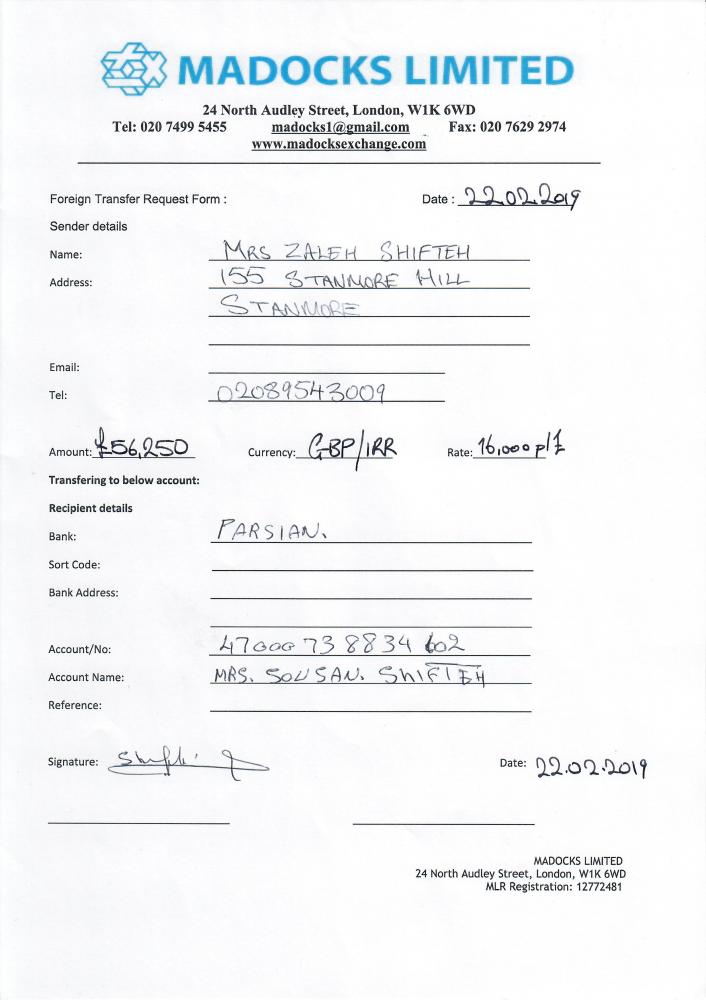 MADOCKS LIMITED
24 North Audley Street, London, W1K 6WD
Tel: 020 7499 5455 madocks1@gmail.com Fax: 020 7629 2974
www.madocksexchange.com
Foreign Transfer Request Form : Date : 22.02.2019
Sender details
Name: MRS ZALEH SHIFTEH
Address: 155 STANMORE HILL
STANMORE
Email:
Tel: 02089543009
Amount: £56,250 Currency: GBP/IRR Rate: 16,000 p/£
Transfering to below account:
Recipient details
Bank: PARSIAN.
Sort Code:
Bank Address:
Account/No: 47000 73 8834 602
Account Name: MRS. SOUSAN. SHIFTEH
Reference:
Signature: Date: 22.02.2019
MADOCKS LIMITED
24 North Audley Street, London, W1K 6WD
MLR Registration: 12772481